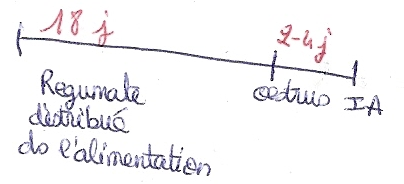 18 j
2-4 j
Regumate
distribué
ds l'alimentation
œstrus
IA